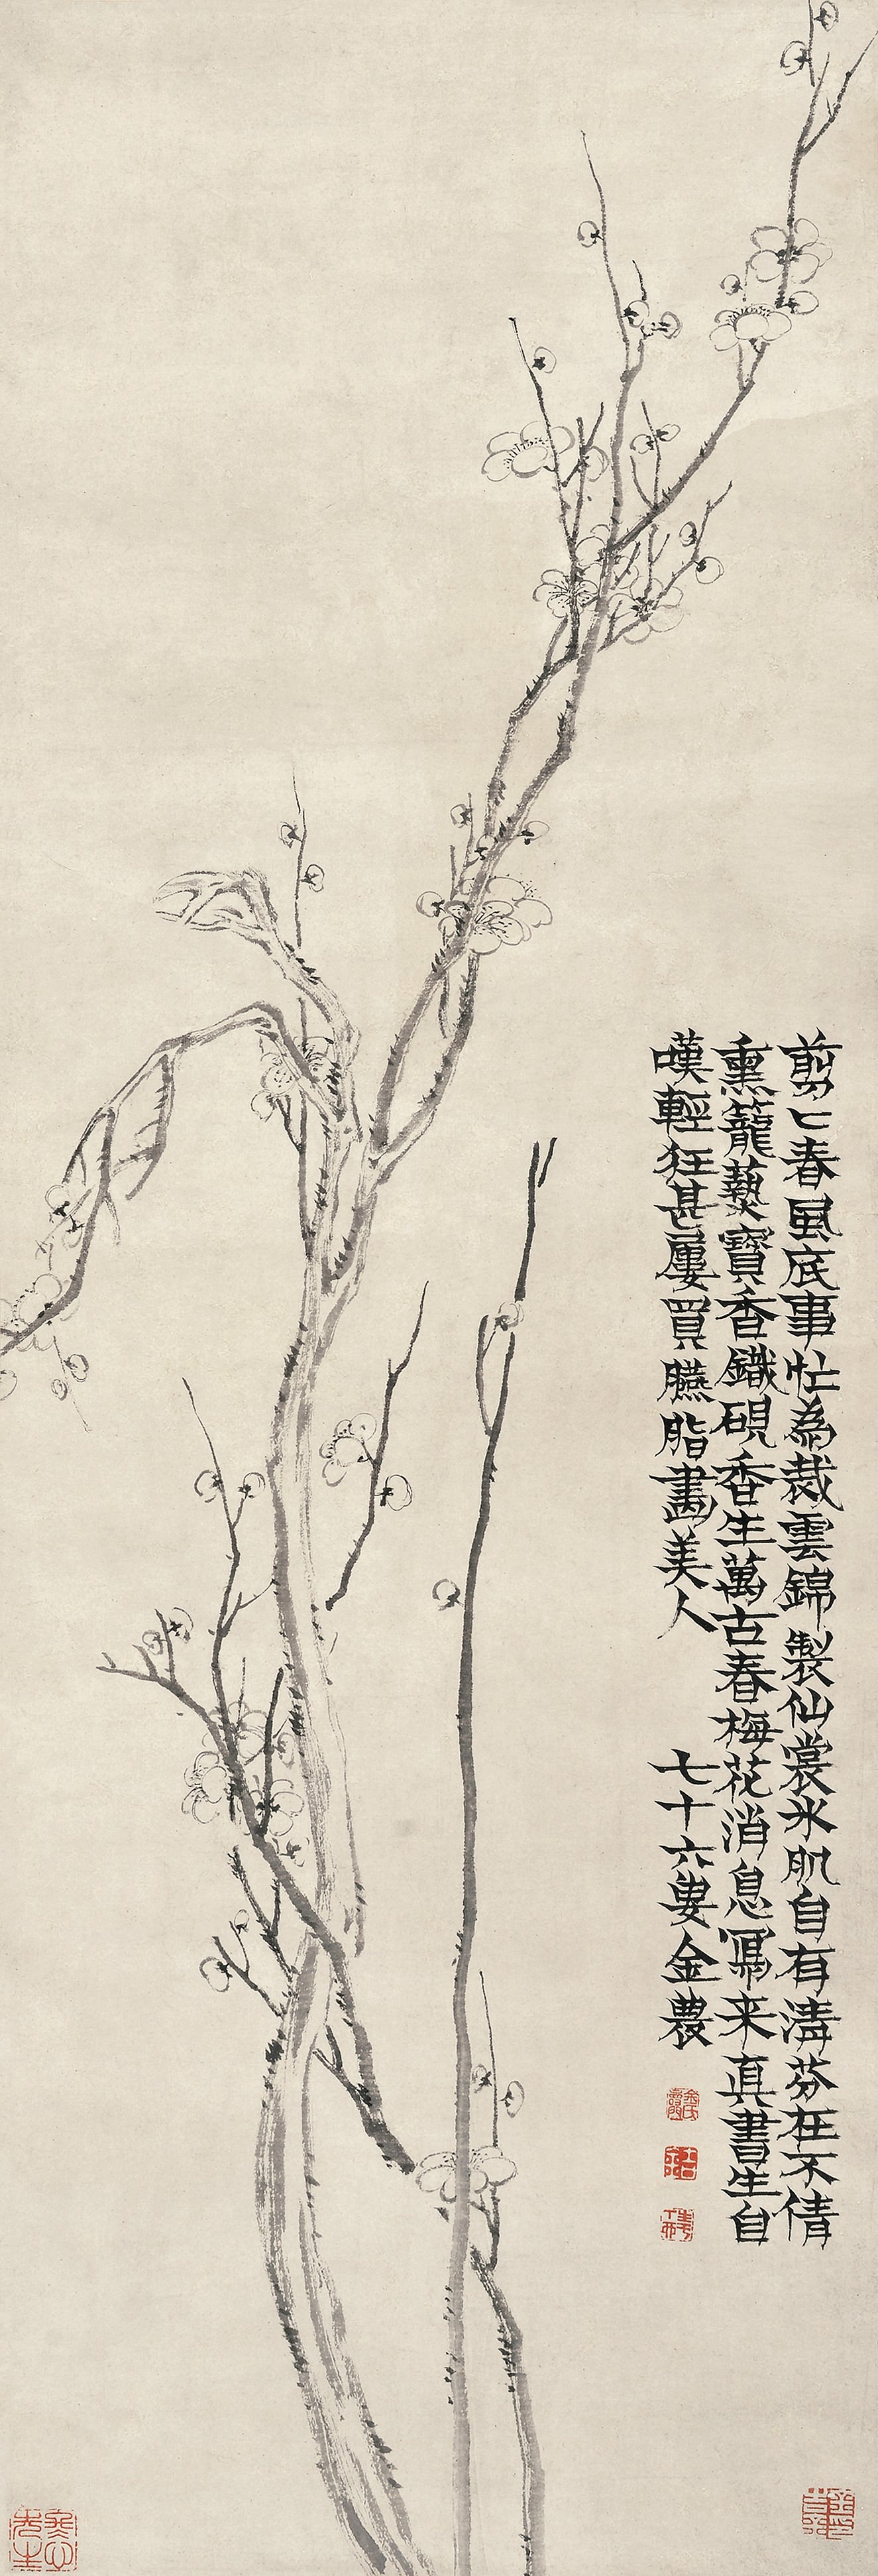 剪匕春風底事忙為裁雲錦製仙裳氷肌自有清芬在不倩
熏籠爇寶香鐵硯香生萬古春梅花消息寫来真書生自
嘆輕狂甚屢買臙脂畫美人
七十六叟金農